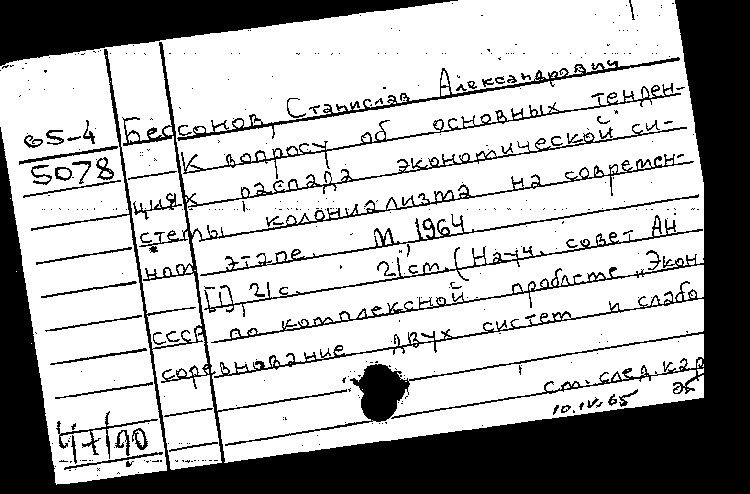 65-4 Бессонов, Станислав Александрович
5078 К вопросу об основных тенден-
циях распада экономической си-
стемы колониализма на современ-
ном этапе. М., 1964.
[I], 21 с. 21 см. (Науч. совет АН
СССР по комплексной проблеме „Экон.
соревнование двух систем и слабо
см. след. кар
10.IV.65